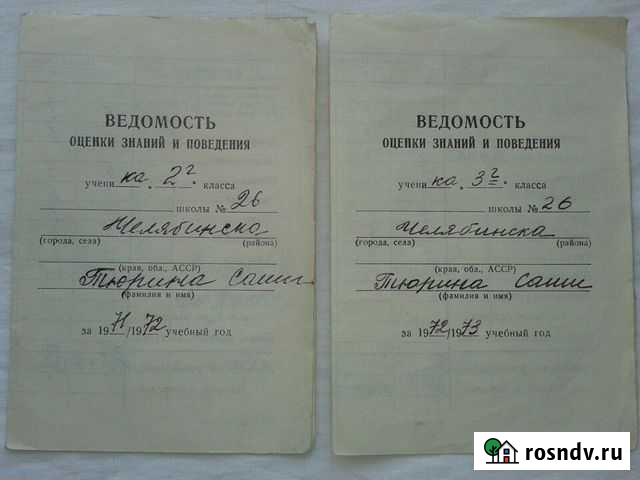 ВЕДОМОСТЬ
ОЦЕНКИ ЗНАНИЙ И ПОВЕДЕНИЯ
учени ка 2 г. класса
школы № 26
Челябинска
(города, села) (района)
(края, обл., АССР)
Тюрина Саши
(фамилия и имя)
за 1971/1972 учебный год
ВЕДОМОСТЬ
ОЦЕНКИ ЗНАНИЙ И ПОВЕДЕНИЯ
учени ка 3 г. класса
школы № 26
Челябинска
(города, села) (района)
(края, обл., АССР)
Тюрина Саши
(фамилия и имя)
за 1972/1973 учебный год
rosndv.ru